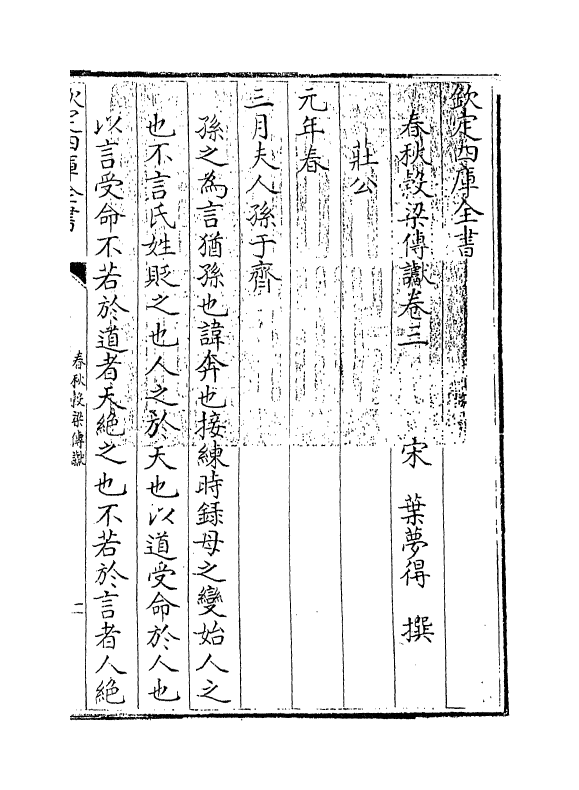 欽定四庫全書
春秋穀梁傳讞卷三
宋 葉夢得 撰
莊公
元年春
三月夫人孫于齊
孫之為言猶孫也諱奔也接練時録母之變始人之
也不言氏姓貶之也人之於天也以道受命於人也
以言受命不若於道者天絶之也不若於言者人絶
欽定四庫全書
春秋穀梁傳讞